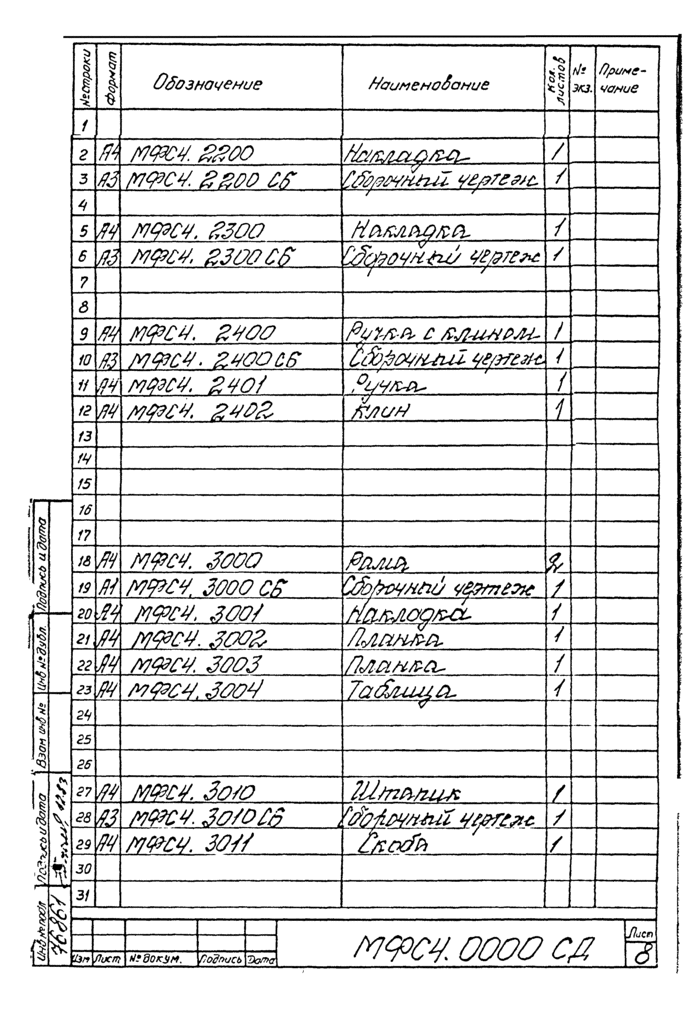 № строки Формат Обозначение Наименование Кол. листов № экз. Примечание
1
2 А4 МФС4. 2200 Накладка 1
3 А3 МФС4. 2200 СБ Сборочный чертеж 1
4
5 А4 МФС4. 2300 Накладка 1
6 А3 МФС4. 2300 СБ Сборочный чертеж 1
7
8
9 А4 МФС4. 2400 Ручка с клином 1
10 А3 МФС4. 2400 СБ Сборочный чертеж 1
11 А4 МФС4. 2401 Ручка 1
12 А4 МФС4. 2402 Клин 1
13
14
15
16
17
18 А4 МФС4. 3000 Рама 2
19 А1 МФС4. 3000 СБ Сборочный чертеж 1
20 А4 МФС4. 3001 Накладка 1
21 А4 МФС4. 3002 Планка 1
22 А4 МФС4. 3003 Планка 1
23 А4 МФС4. 3004 Таблица 1
24
25
26
27 А4 МФС4. 3010 Штапик 1
28 А3 МФС4. 3010 СБ Сборочный чертеж 1
29 А4 МФС4. 3011 Скоба 1
30
31
Подпись и дата
Инв № дубл.
Взам инв №
Подпись и дата
Инв № подл
76861
Изм Лист № докум. Подпись Дата
МФС4. 0000 СД
Лист
8